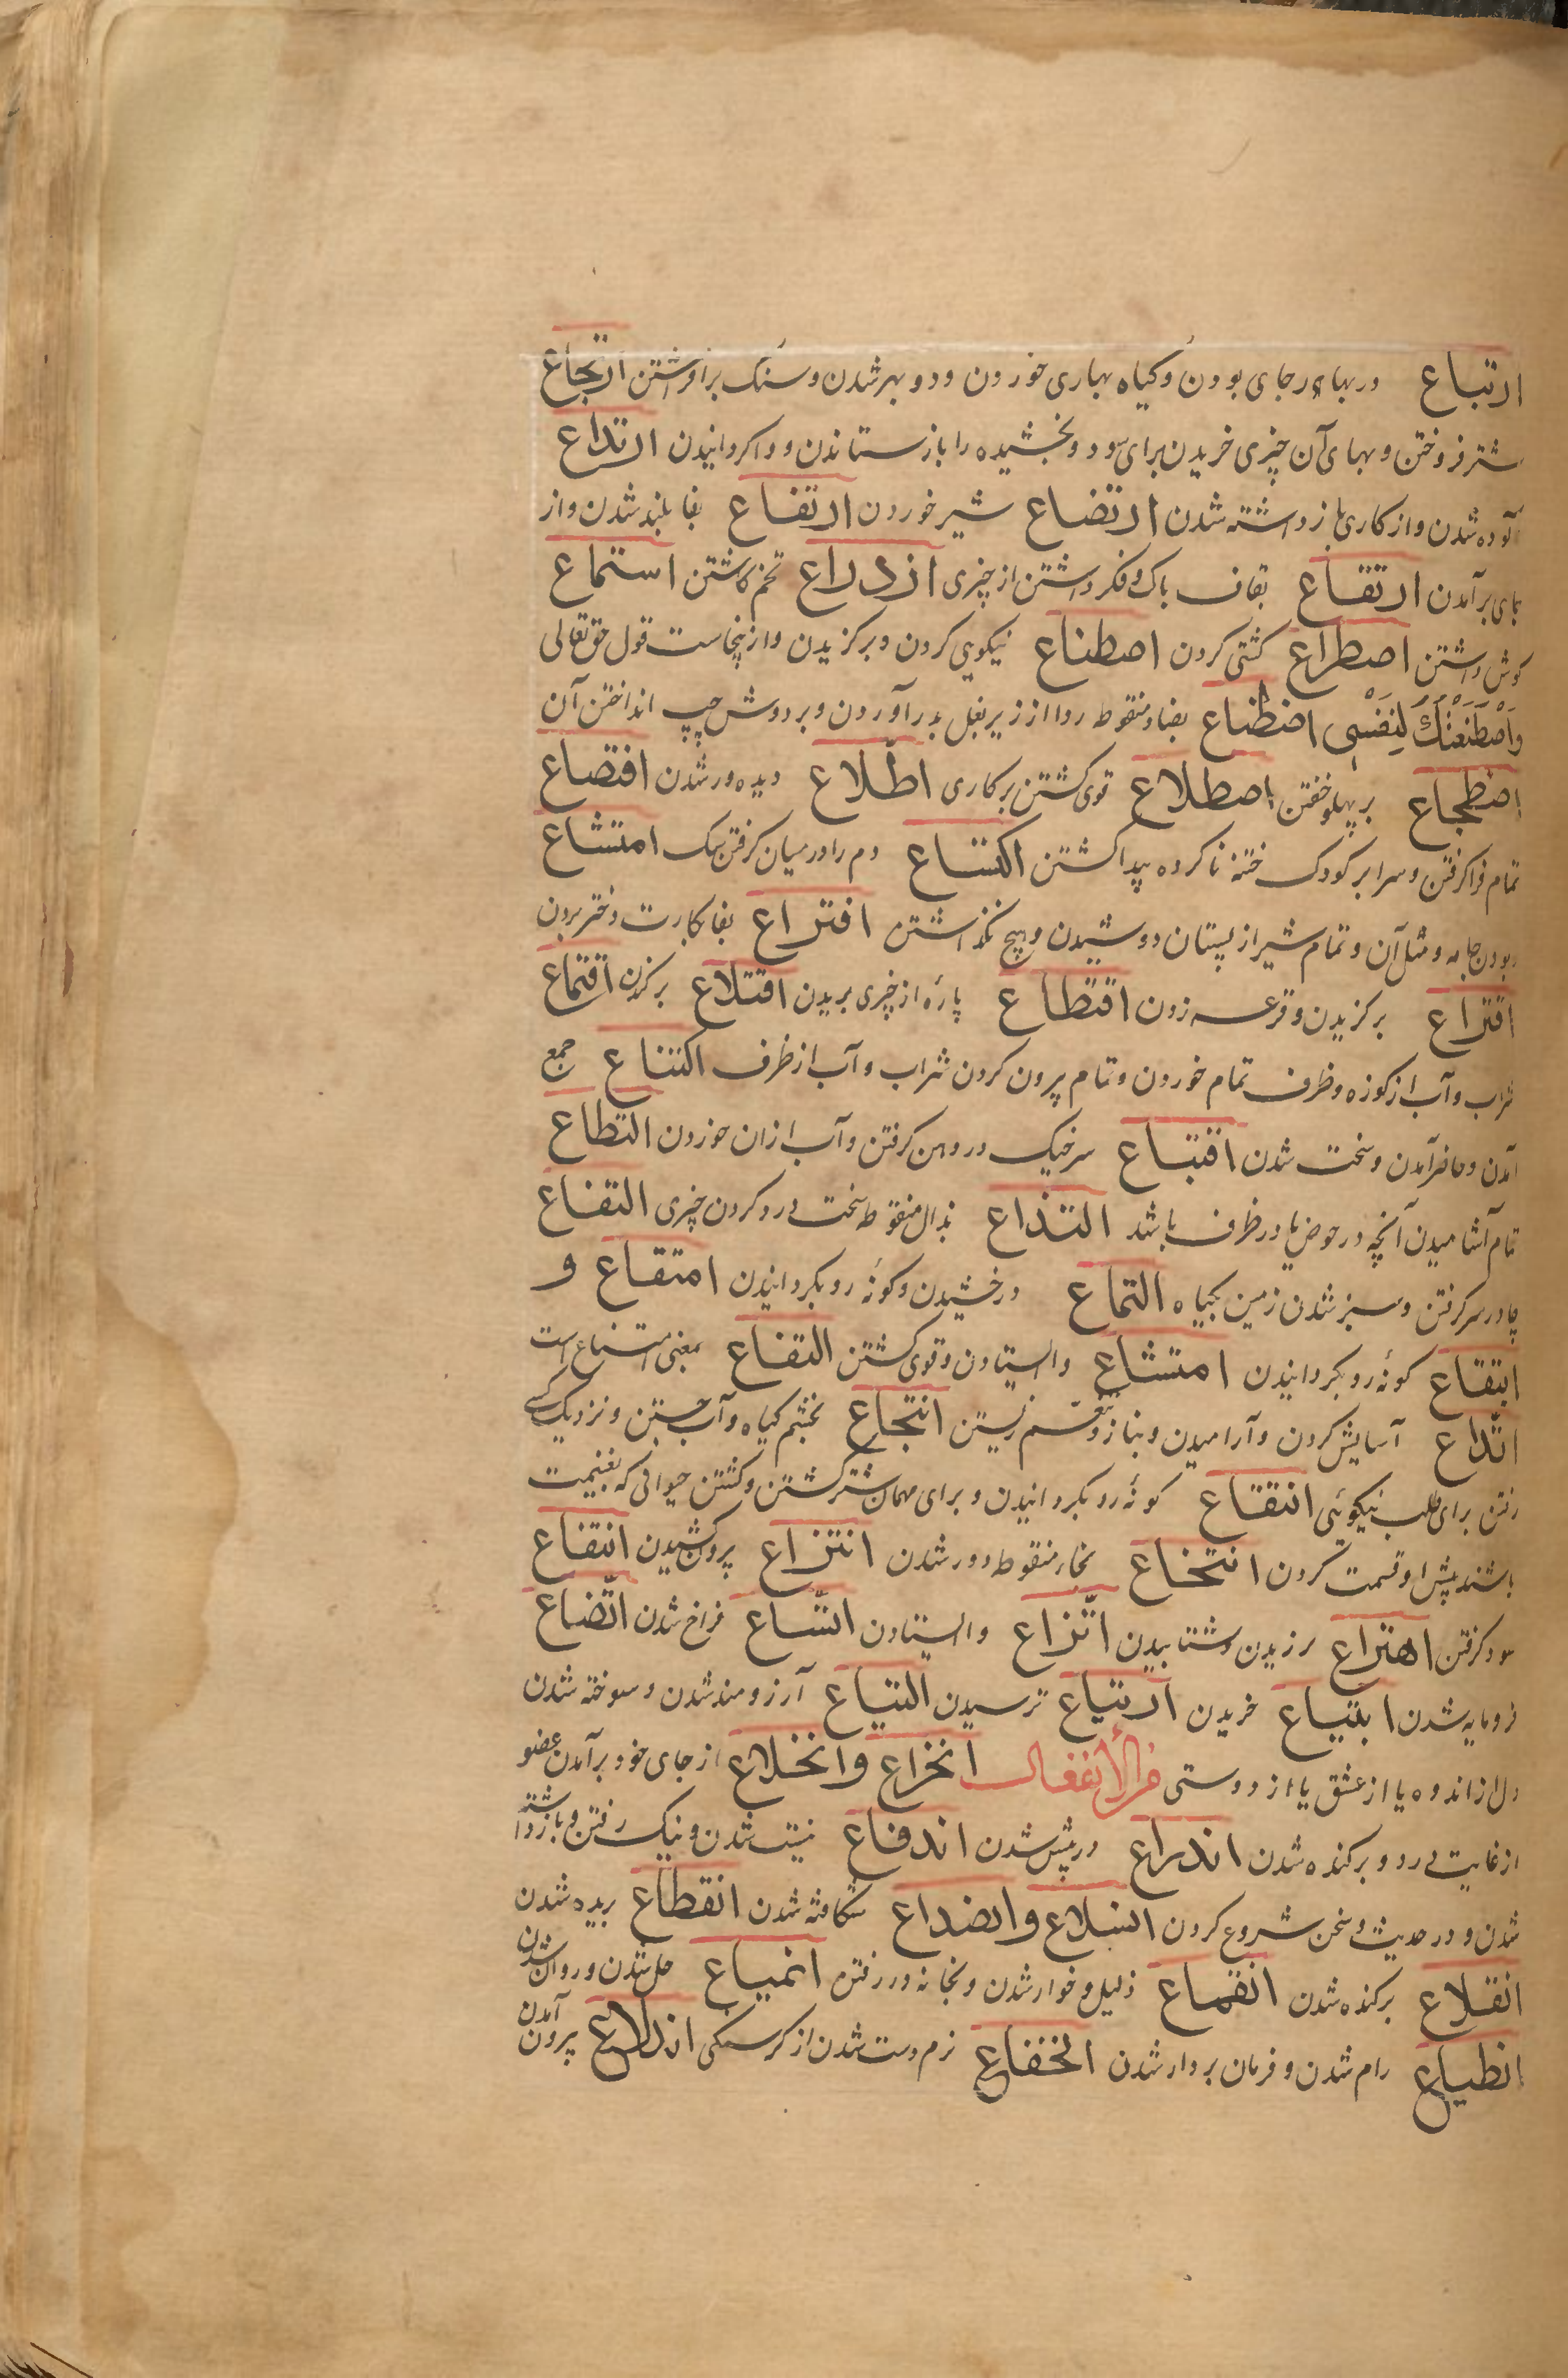 ارتباع در بهار بجای بودن و کیاه بهاری خوردن و دو بهر شدن و سنک برافراشتن ارتجاع
شتر فروختن و بهای آن چیزی خریدن برای سود و بخشیده را باز ستاندن و واکردانیدن ارتداع
آلوده شدن و از کاری باز داشته شدن ارتضاع شیر خوردن ارتفاع بفا بلند شدن و از
جای برآمدن ارتقاع بقاف باک و فکر داشتن از چیزی ازدراع تخم کاشتن استماع
کوش داشتن اصطراع کشتی کردن اصطناع نیکویی کردن و برکزیدن و ازینجاست قول حق تعالی
وَاصْطَنَعْتُكَ لِنَفْسِی اضطباع بضاد منقوط ردا از زیر بغل بدر آوردن و بر دوش چپ انداختن آن
اضطجاع بر پهلو خفتن اضطلاع قوی کشتن بر کاری اطّلاع دیده ور شدن اقتصاع
تمام فرا کرفتن و سر ابر کودک ختنه ناکرده پیدا کشتن اکتساع دم را در میان کرفتن سک امتشاع
ربودن جامه و مثل آن و تمام شیر از پستان دوشیدن و هیچ نکذاشتن افتراع بفا بکارت دختر بردن
اقتراع برکزیدن و قرعه زدن اقتطاع پارهٔ از چیزی بریدن اقتلاع برکندن اقتماع
شراب و آب از کوزه و ظرف تمام خوردن و تمام بیرون کردن شراب و آب از ظرف اکتناع جمع
آمدن و حاضر آمدن و سخت شدن اقتباع سر خیک در دهن کرفتن و آب ازان خوردن التطاع
تمام آشامیدن آنچه در حوض یا در ظرف باشد التذاع بذال منقوط سخت درد کردن چیزی التفاع
چادر سر کرفتن و سبز شدن زمین بکیاه التماع درخشیدن و کونهٔ رو بکردانیدن امتقاع و
ابتقاع کونهٔ رو بکردانیدن امتشاع وا ایستادن و قوی کشتن التفاع بمعنی است
اتّداع آسایش کردن و آرامیدن و بناز و تنعّم زیستن انتجاع بجیم کیاه و آب جستن و نزدیک کسی
رفتن برای طلب نیکویی انتقاع کونهٔ رو بکردانیدن و برای مهمان شتر کشتن و کشتن حیوانی که بغنیمت
باشند پیش از قسمت کردن انتخاع بخاء منقوط دور شدن انتزاع بیرون کشیدن انتفاع
سود کرفتن اهتزاع لرزیدن و شتابیدن اتّزاع وا ایستادن اتّساع فراخ شدن اتّضاع
فرومایه شدن ابتیاع خریدن ارتیاع ترسیدن التیاع آرزومند شدن و سوخته شدن
دل از اندوه یا از عشق یا از دوستی من الأنفعال انخزاع و انخلاع از جای خود برآمدن عضو
از غایت درد و برکنده شدن اندراع در پیش شدن اندفاع نیست شدن و نیک رفتن و باز داشته
شدن و در حدیث و سخن شروع کردن انسلاع و انصداع شکافته شدن انقطاع بریده شدن
انقلاع برکنده شدن انقماع ذلیل و خوار شدن و بخانه در رفتن انمیاع حل شدن و روان شدن
انطیاع رام شدن و فرمان بردار شدن انخفاع نرم و سست شدن از کرسنکی اندلاع بیرون آمدن